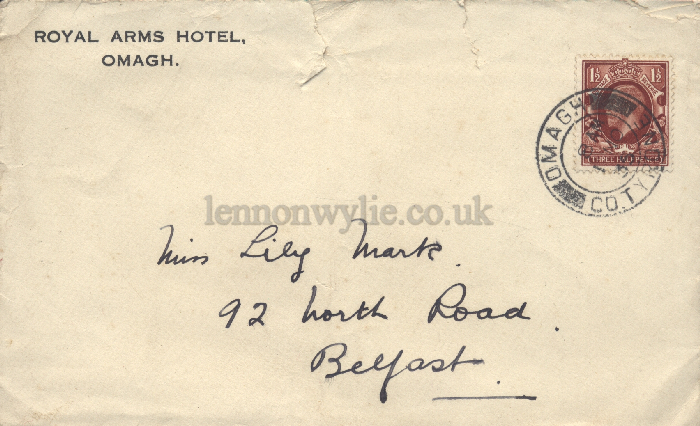 ROYAL ARMS HOTEL,
OMAGH.
1½ 1½
THREE HALF PENCE
OMAGH
CO. TYRONE
lennonwylie.co.uk
Miss Lily Mark
92 North Road.
Belfast